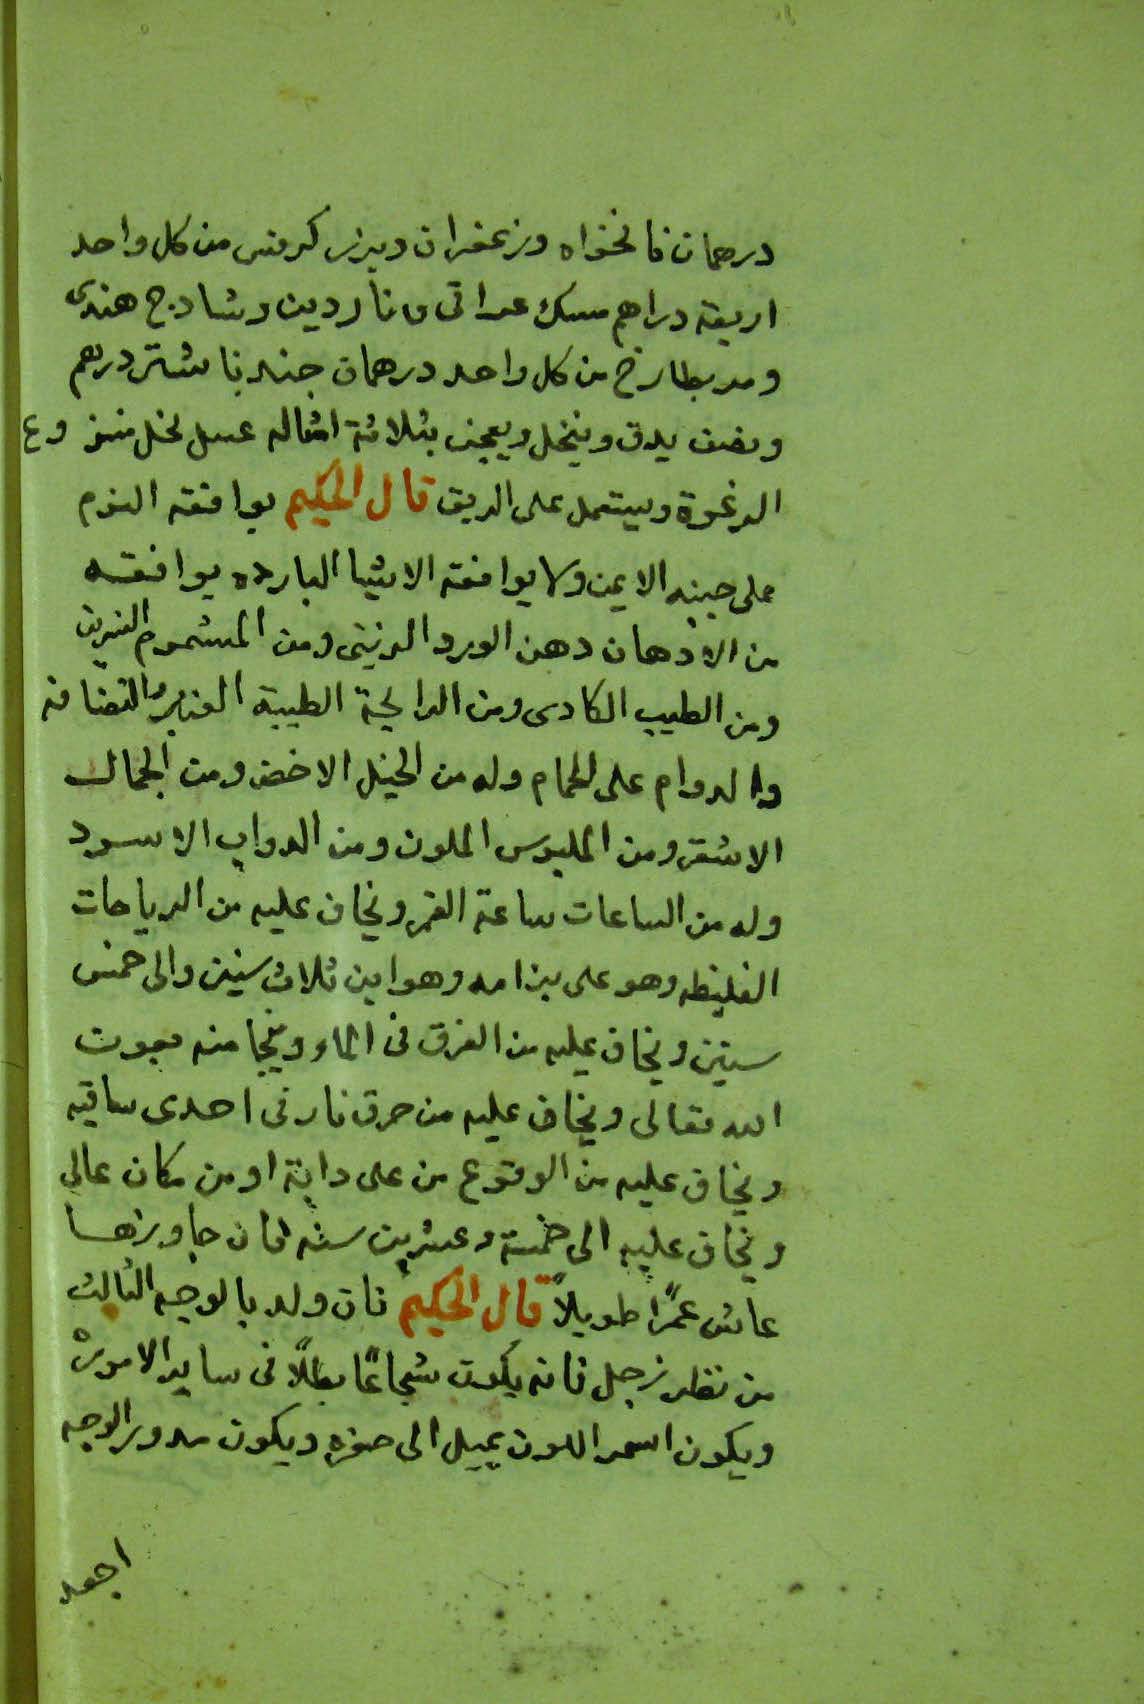 درهمان نانخواه وزعفران وبزر كرفس من كل واحد
اربعة دراهم مسك عراقى وناردين وشادج هندى
من كل واحد درهمان جندباشتر درهم
ونصف يدق وينخل ويعجن بثلاثة امثاله عسل نخل منزوع
الرغوة ويستعمل على الريق قال الحكيم يوافقه النوم
على جنبه الايمن ولا يوافقه الاشيا البارده يوافقه
من الادهان دهن الورد الزنبقى ومن المشموم النسرين
ومن الطيب الكادى ومن الرايحة الطيبة العنبر والنضافه
والدوام على الحمام وله من الخيل الاخضر ومن الجمال
الاشقر ومن الملبوس الملون ومن الدواب الاسود
وله من الساعات ساعة القمر ويخاف عليه من الرياحات
الغليظه وهو على بزامه وهو ابن ثلاث سنين والى خمس
سنين ويخاف عليه من الغرق فى الماء وينجا منه بعون
الله تعالى ويخاف عليه من حرق نار فى احدى ساقيه
ويخاف عليه من الوقوع من على دابة او من مكان عالى
ويخاف عليه الى خمسة وعشرين سنه فان جاوزها
عاش عمرًا طويلاً قال الحكيم فان ولد بالوجه الثالث
من نظر زحل فانه يكون شجاعًا بطلاً فى ساير الامور
ويكون اسمر اللون يميل الى صفره ويكون مدور الوجه
اجعد